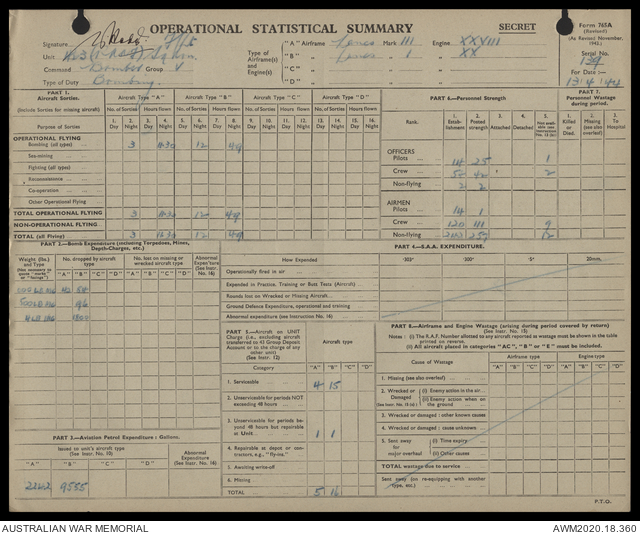 OPERATIONAL STATISTICAL SUMMARY
SECRET
Form 765A
(Revised)
(As Revised November, 1942.)
Serial No.
139
For Date :—
13/4/44
Signature
Unit
Command Bomber Group V
Type of Duty Bombing
Type of Airframe(s) and Engine(s):
"A" Airframe Lancs Mark III Engine XXVIII
"B" " Lancs " I " XX
"C" " " "
"D" " " "
PART 1.
Aircraft Sorties.
(Include Sorties for missing aircraft)
Purpose of Sorties
Aircraft Type "A" Aircraft Type "B" Aircraft Type "C" Aircraft Type "D"
No. of Sorties Hours flown No. of Sorties Hours flown No. of Sorties Hours flown No. of Sorties Hours flown
1. Day 2. Night 3. Day 4. Night 5. Day 6. Night 7. Day 8. Night 9. Day 10. Night 11. Day 12. Night 13. Day 14. Night 15. Day 16. Night
OPERATIONAL FLYING
Bombing (all types) ... 3 12 49
Sea-mining ...
Fighting (all types) ...
Reconnaissance ...
Co-operation ...
Other Operational flying
TOTAL OPERATIONAL FLYING 3 12 49
NON-OPERATIONAL FLYING
TOTAL (all Flying) ... 3 12 49
PART 6.—Personnel Strength
Rank.
1. Establishment
2. Posted strength
3. Attached
4. Detached
5. Not available (see Instruction No. 13 (b))
PART 7.
Personnel Wastage during period.
1. Killed or Died.
2. Missing (see also overleaf)
3. To Hospital
OFFICERS
Pilots ... 14 25 1
Crew ... 42 2
Non-flying 2 2
AIRMEN
Pilots ... 14 1
Crew ... 120 111 9
Non-flying 259 12
PART 2.—Bomb Expenditure (including Torpedoes, Mines, Depth-Charges, etc.)
Weight (lbs.) and Type
No. dropped by aircraft type
"A" "B" "C" "D"
No. lost on missing or wrecked aircraft type
"A" "B" "C" "D"
Abnormal Expenditure (See Instr. No. 16)
42 58
500LB 96
4LB 1800
PART 4.—S.A.A. EXPENDITURE.
How Expended ·303" ·300" ·5" 20mm.
Operationally fired in air ...
Expended in Practice, Training or Butt Tests (Aircraft) ...
Rounds lost on Wrecked or Missing Aircraft ...
Ground Defence Expenditure, operational and training
Abnormal expenditure (see Instruction No. 16)
PART 5.—Aircraft on UNIT Charge (i.e., excluding aircraft transferred to 43 Group Deposit Account or to the charge of any other unit)
(See Instr. 12)
Category
Aircraft type
"A" "B" "C" "D"
1. Serviceable 4 15
2. Unserviceable for periods NOT exceeding 48 hours ...
3. Unserviceable for periods beyond 48 hours but repairable at Unit ... 1 1
4. Repairable at depot or contractors, e.g., "fly-ins."
5. Awaiting write-off ...
6. Missing ...
TOTAL 5 16
PART 8.—Airframe and Engine Wastage (arising during period covered by return)
(See Instr. No. 15)
Notes : (i) The R.A.F. Number allotted to any aircraft reported as wastage must be shown in the table printed on reverse.
(ii) All aircraft placed in categories "AC", "B" or "E" must be included.
Cause of Wastage
Airframe type Engine type
"A" "B" "C" "D" "A" "B" "C" "D"
1. Missing (see also overleaf) ...
2. Wrecked or Damaged (i) Enemy action in the air ...
(See Instr. No. 15 (a)) (ii) Enemy action when on the ground ...
3. Wrecked or damaged : other known causes
4. Wrecked or damaged : cause unknown ...
5. Sent away for major overhaul (i) Time expiry ...
(ii) Other causes ...
TOTAL wastage due to service ...
Sent away (on re-equipping with another type, etc.)
PART 3.—Aviation Petrol Expenditure : Gallons.
Issued to unit's aircraft type
(See Instr. No. 10)
"A" "B" "C" "D"
Abnormal Expenditure
(See Instr. No. 16)
2242 9555
P.T.O.
AUSTRALIAN WAR MEMORIAL
AWM2020.18.360